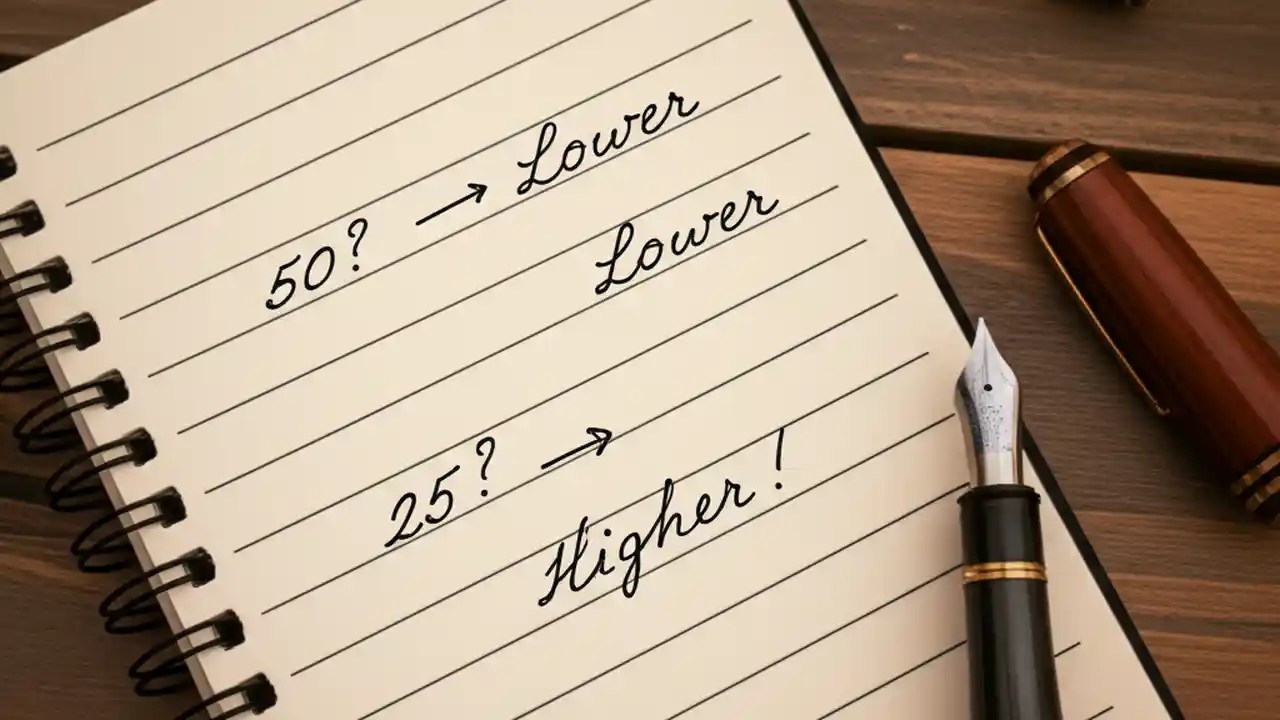 50? → Lower
Lower
25? →
Higher!